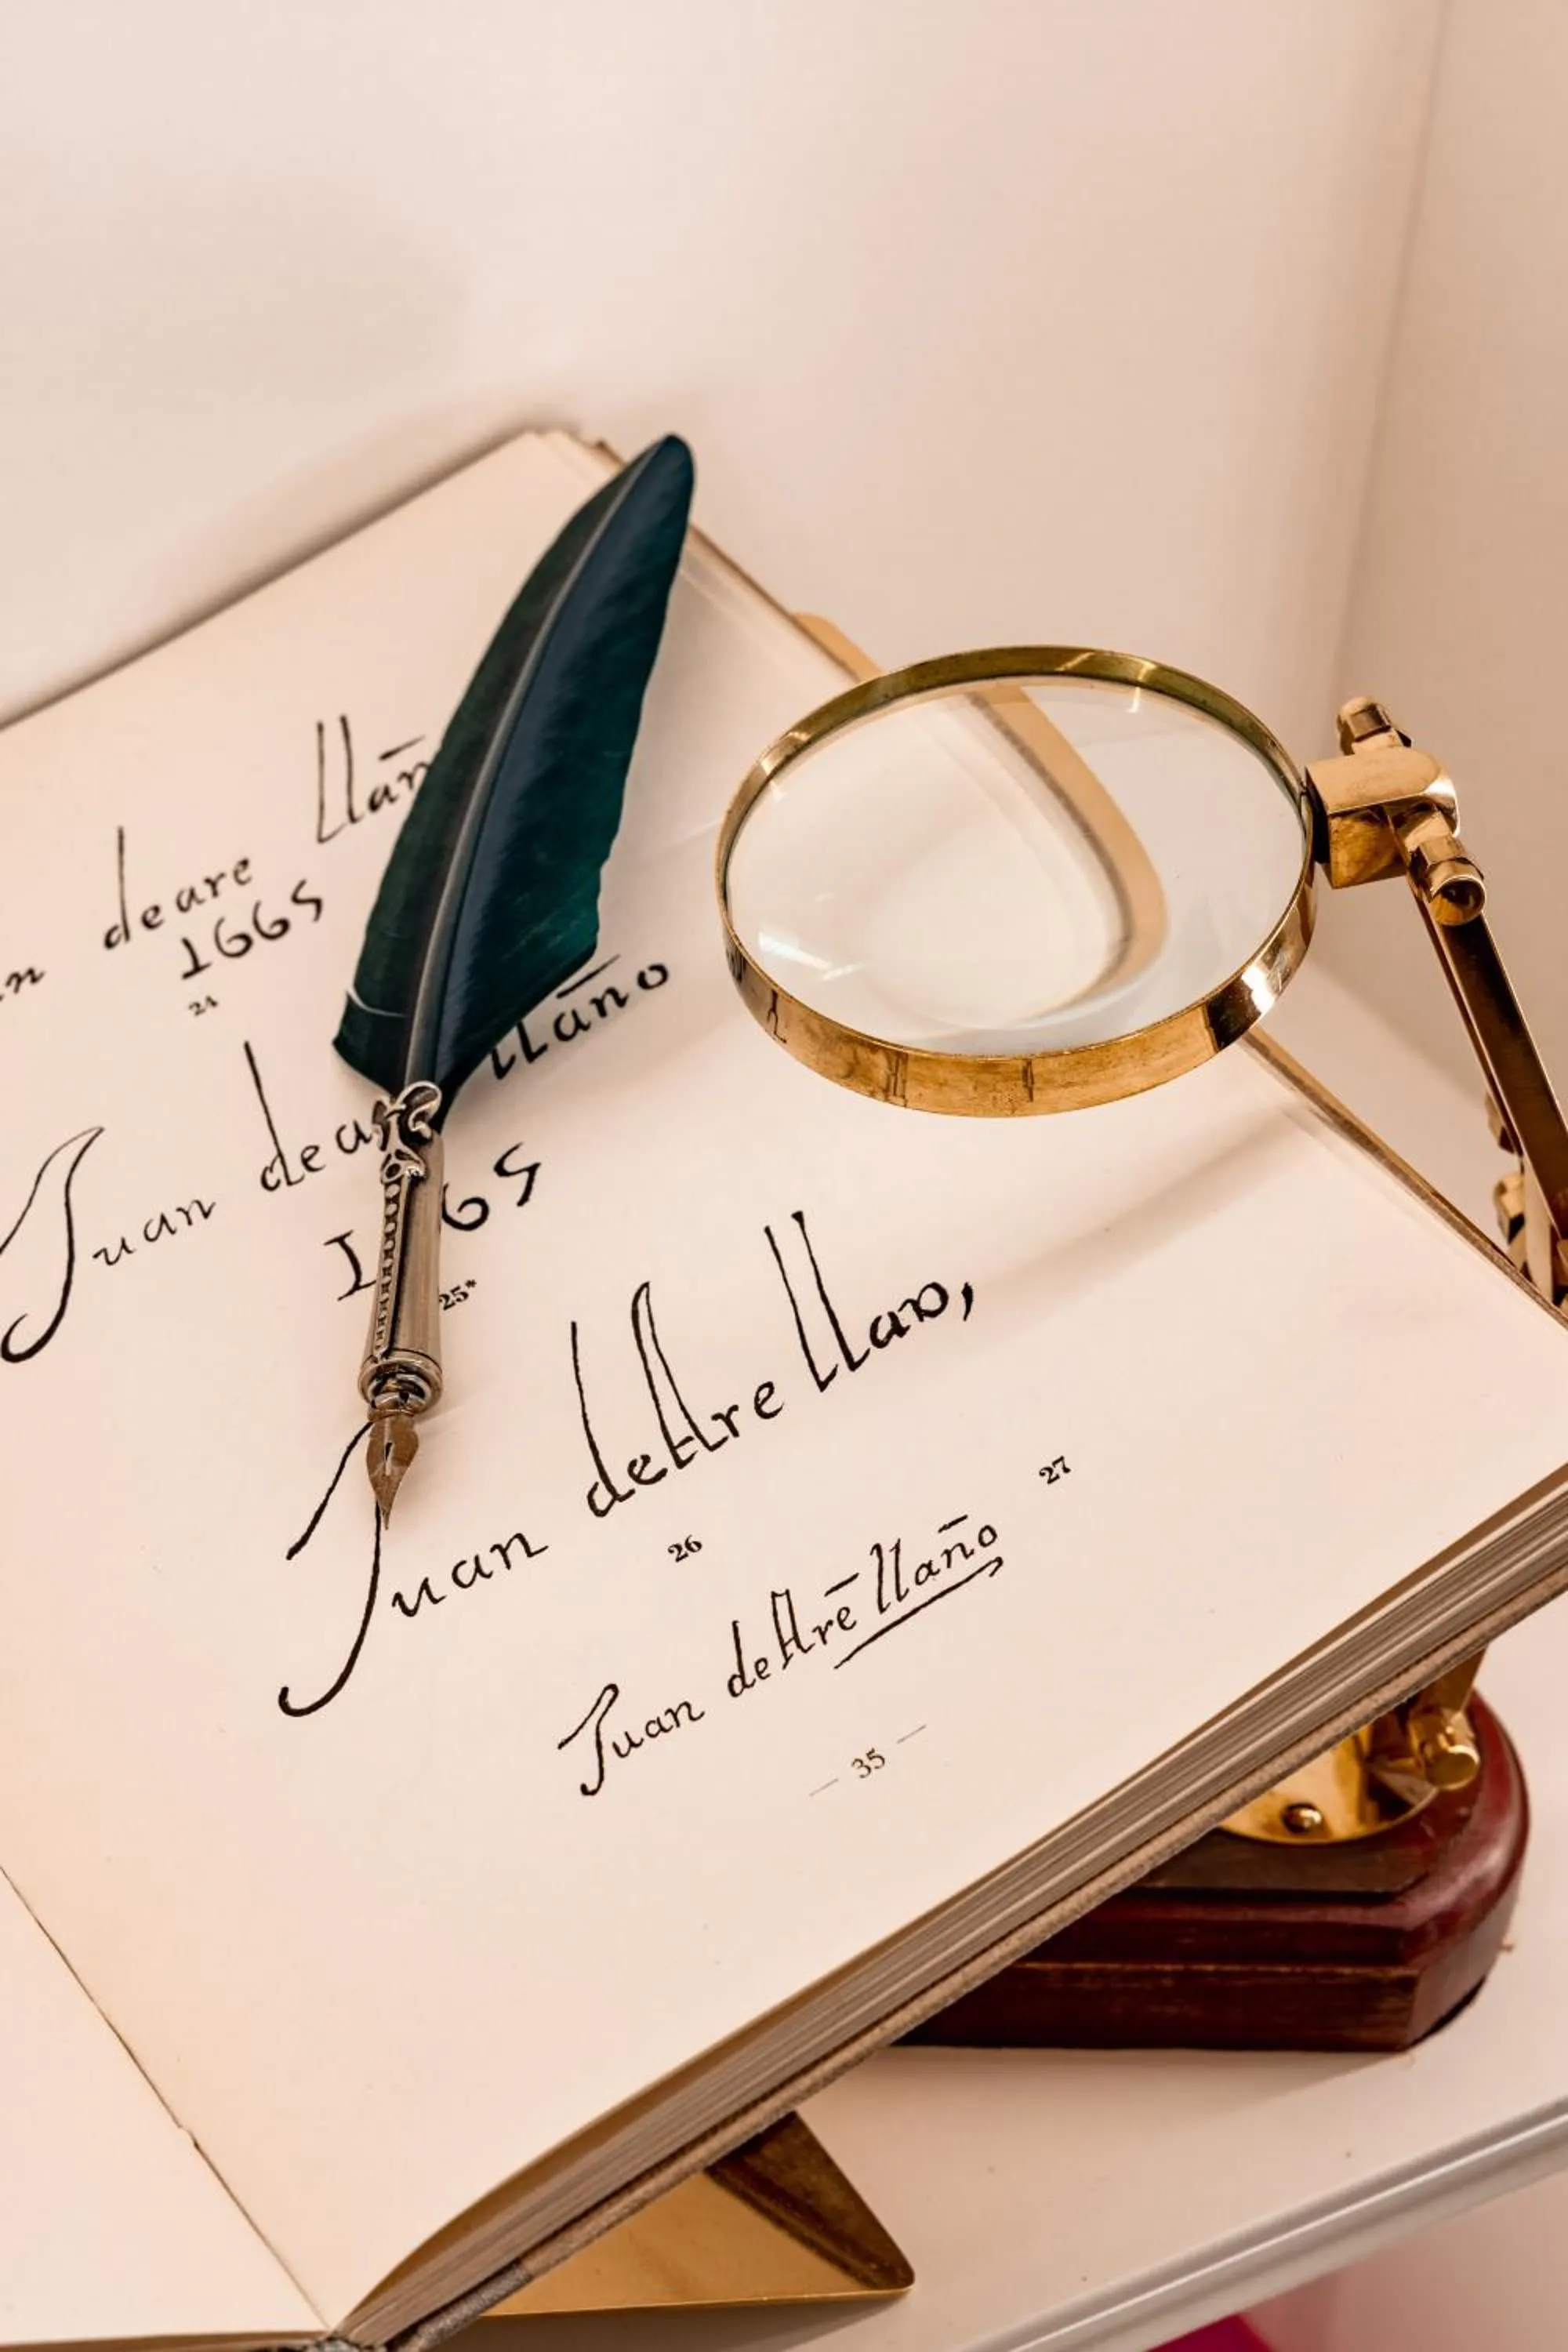 deare llañ
1665
24
Juan deare llaño
1665
25*
Juan deAre llao,
26
27
Juan deArē llaño
— 35 —